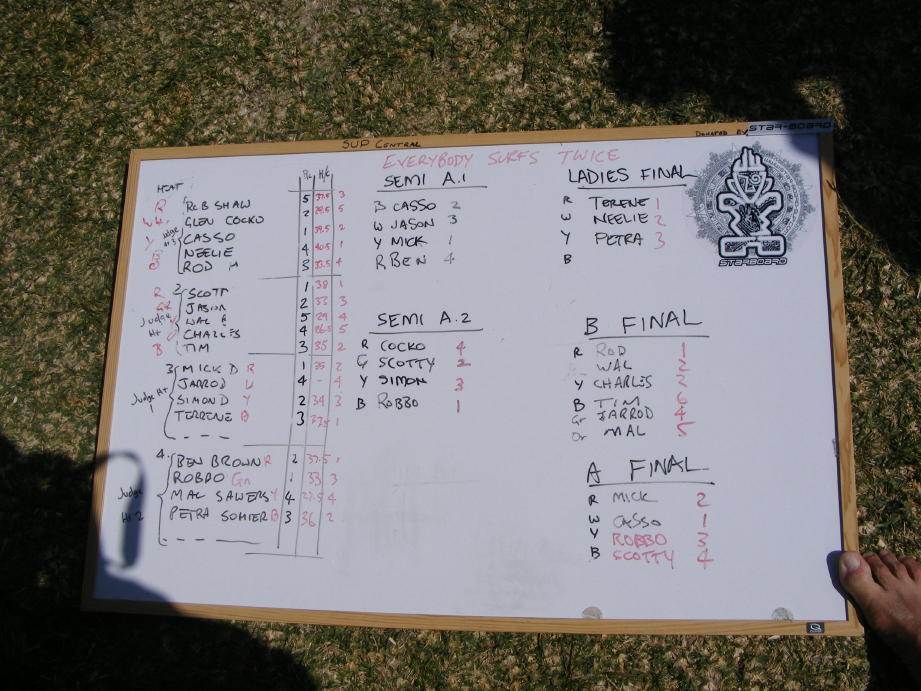 SUP CENTRAL
DONATED BY STAR-BOARD
EVERYBODY SURFS TWICE
HEAT
R ROB SHAW 5 5
GLEN COCKO 2 5
Y CASSO 1 39.5 2
NEELIE 4 40.5 1
ROD 3 4
2 R SCOTT 1 38 1
JASON 2 33 3
Judge WAL 5 29 4
CHARLES 4 26.5 5
B TIM 3 35 2
3 MICK D R 1 35 2
JARROD 4 - 4
Judge Ht 1 SIMON D Y 2 34 3
TERENE B 3 1
- - - -
4. BEN BROWN R 2 37.5 1
ROBBO Gn 1 33 3
Judge MAL SAWERS Y 4 27.5 4
Ht 2 PETRA B 3 36 2
- - - -
SEMI A.1
B CASSO 2
W JASON 3
Y MICK 1
R BEN 4
SEMI A.2
R COCKO 4
G SCOTTY 2
Y SIMON 3
B ROBBO 1
LADIES FINAL
R TERENE 1
W NEELIE 2
Y PETRA 3
B
STARBOARD
B FINAL
R ROD 1
WAL 2
Y CHARLES
B TIM 6
Gr JARROD 4
Or MAL 5
A FINAL
R MICK 2
W CASSO 1
Y ROBBO 3
B SCOTTY 4